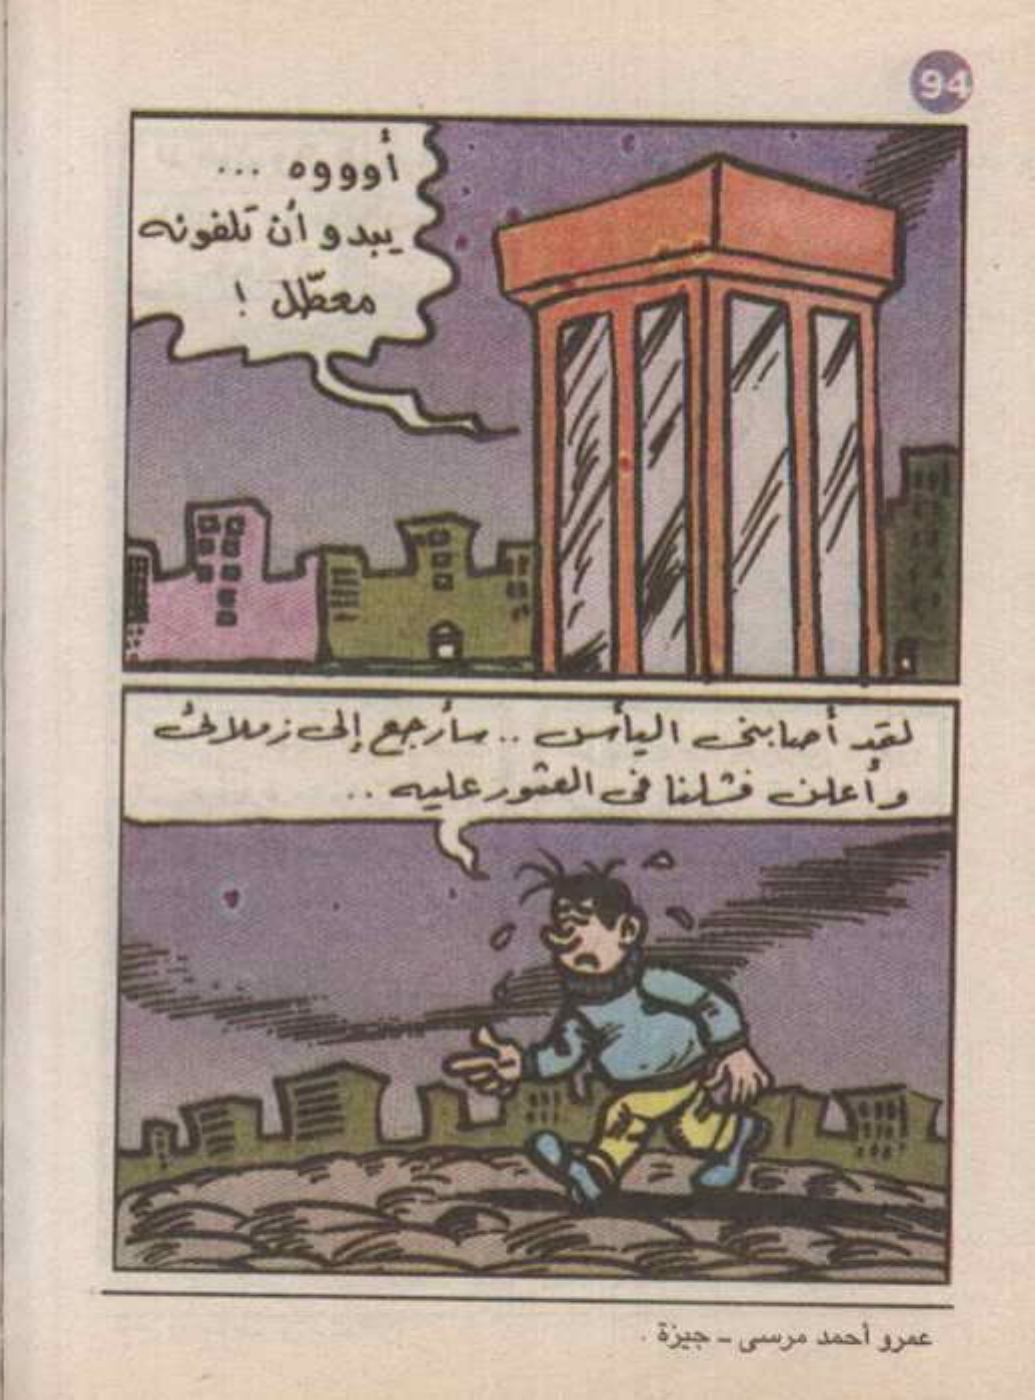 94
أوووه ...
يبدو أن تلفونه
معطّل !
لقد أصابنى اليأس .. سأرجع إلى زملائى
وأعلن فشلنا فى العثور عليه ..
عمرو أحمد مرسى - جيزة .